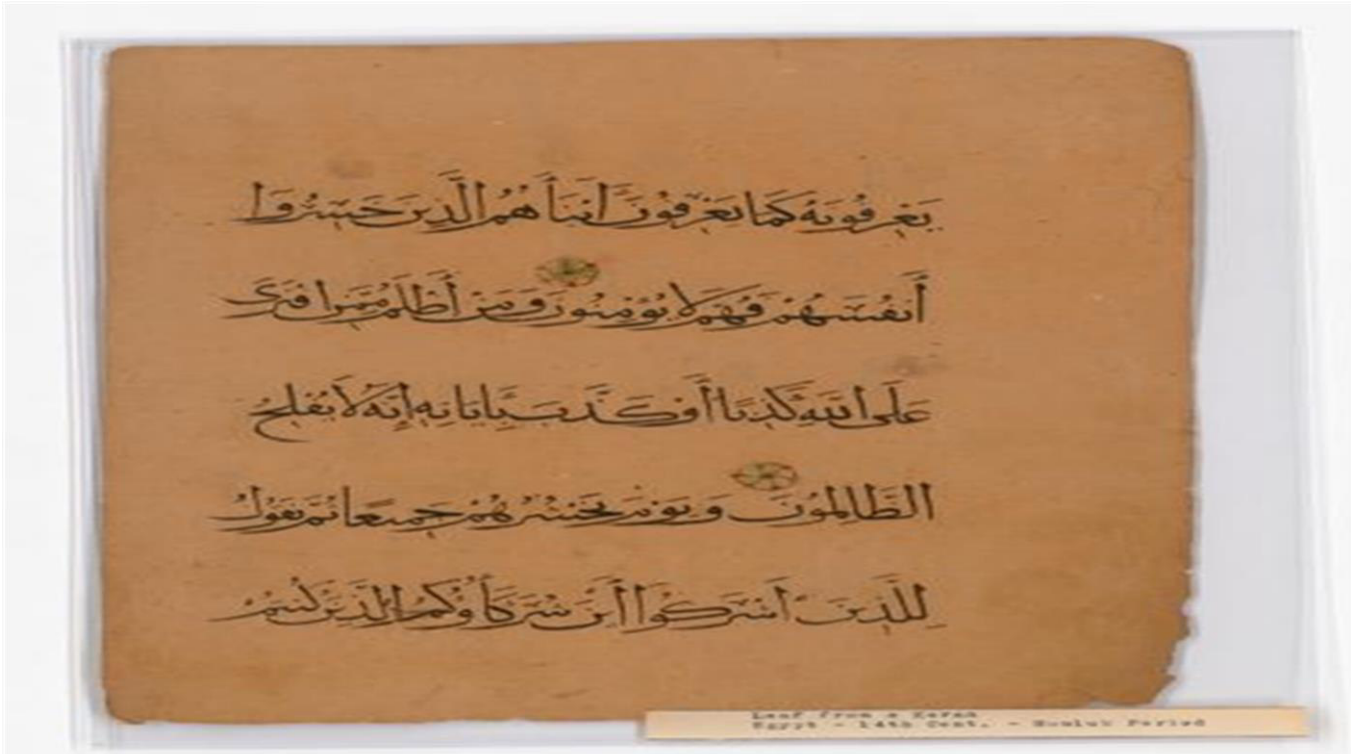 يَعْرِفُونَهُ كَمَا يَعْرِفُونَ أَبْنَاءَهُمُ الَّذِينَ خَسِرُوا
أَنفُسَهُمْ فَهُمْ لَا يُؤْمِنُونَ وَمَنْ أَظْلَمُ مِمَّنِ افْتَرَى
عَلَى اللَّهِ كَذِبًا أَوْ كَذَّبَ بِآيَاتِهِ إِنَّهُ لَا يُفْلِحُ
الظَّالِمُونَ وَيَوْمَ نَحْشُرُهُمْ جَمِيعًا ثُمَّ نَقُولُ
لِلَّذِينَ أَشْرَكُوا أَيْنَ شُرَكَاؤُكُمُ الَّذِينَ كُنتُمْ
Leaf from a Koran
Egypt - 14th Cent. - Mamluk Period